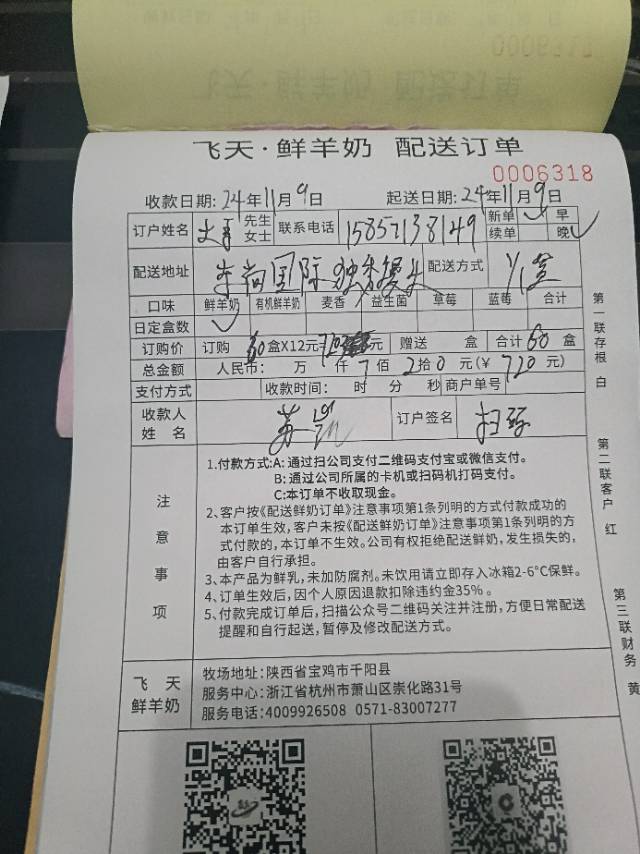 飞天·鲜羊奶 配送订单
0006318
收款日期: 24年11月9日 起送日期: 24年11月9日
订户姓名 先生 女士 联系电话 15857138149 新单 早
续单 晚
配送地址 国际 独 配送方式
口味 鲜羊奶 有机鲜羊奶 麦香 益生菌 草莓 蓝莓 合计
日定盒数
订购价 订购 60盒X12元 元 赠送 盒 合计60盒
总金额 人民币: 万 仟7佰2拾0元(¥720元)
支付方式 收款时间: 时 分 秒 商户单号
收款人 姓名 订户签名
注意事项
1.付款方式:A:通过扫公司支付二维码支付宝或微信支付。
B:通过公司所属的卡机或扫码机打码支付。
C:本订单不收取现金。
2、客户按《配送鲜奶订单》注意事项第1条列明的方式付款成功的
本订单生效,客户未按《配送鲜奶订单》注意事项第1条列明的方
式付款的,本订单不生效。公司有权拒绝配送鲜奶,发生损失的,
由客户自行承担。
3、本产品为鲜乳,未加防腐剂。未饮用请立即存入冰箱2-6°C保鲜。
4、订单生效后,因个人原因退款扣除违约金35%。
5、付款完成订单后,扫描公众号二维码关注并注册,方便日常配送
提醒和自行起送,暂停及修改配送方式。
飞天
鲜羊奶
牧场地址:陕西省宝鸡市千阳县
服务中心:浙江省杭州市萧山区崇化路31号
服务电话:4009926508 0571-83007277
第一联存根 白
第二联客户 红
第三联财务 黄